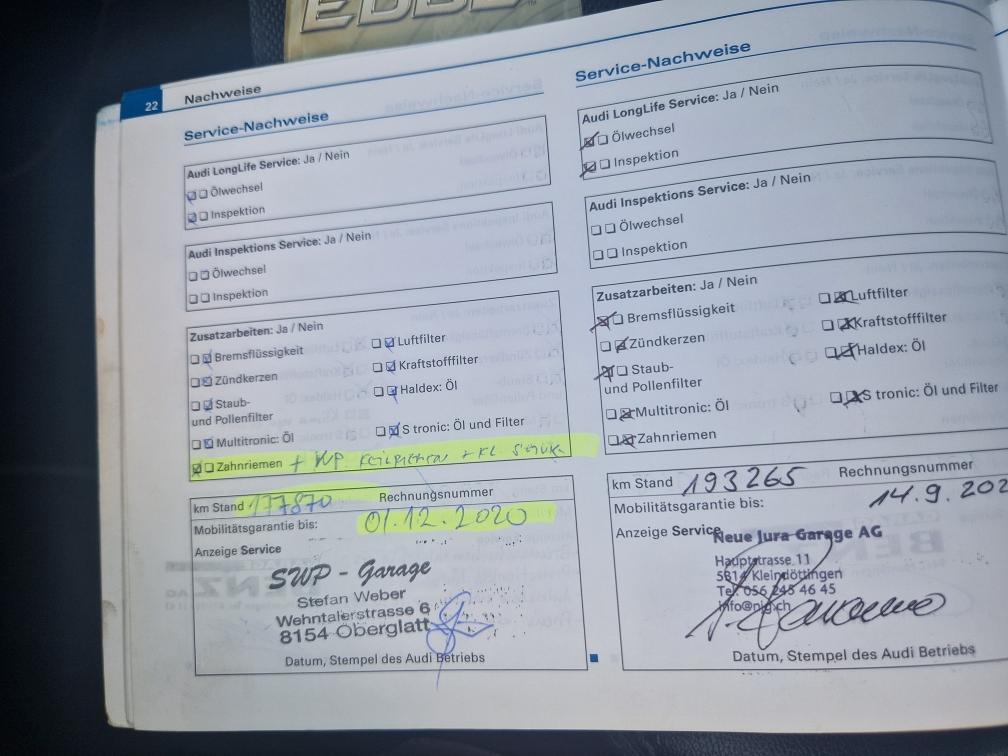 EDGE
22 Nachweise
Service-Nachweise
Audi LongLife Service: Ja / Nein
Ölwechsel
Inspektion
Audi Inspektions Service: Ja / Nein
Ölwechsel
Inspektion
Zusatzarbeiten: Ja / Nein
Bremsflüssigkeit
Luftfilter
Zündkerzen
Kraftstofffilter
Staub-
und Pollenfilter
Haldex: Öl
Multitronic: Öl
S tronic: Öl und Filter
Zahnriemen + WP
km Stand 177870 Rechnungsnummer
Mobilitätsgarantie bis: 01.12.2020
Anzeige Service
SWP - Garage
Stefan Weber
Wehntalerstrasse 6
8154 Oberglatt
Datum, Stempel des Audi Betriebs
Service-Nachweise
Audi LongLife Service: Ja / Nein
Ölwechsel
Inspektion
Audi Inspektions Service: Ja / Nein
Ölwechsel
Inspektion
Zusatzarbeiten: Ja / Nein
Bremsflüssigkeit
Luftfilter
Zündkerzen
Kraftstofffilter
Staub-
und Pollenfilter
Haldex: Öl
Multitronic: Öl
S tronic: Öl und Filter
Zahnriemen
km Stand 193265 Rechnungsnummer
Mobilitätsgarantie bis: 14.9.202
Anzeige Service
Neue Jura Garage AG
Hauptstrasse 11
5314 Kleindöttingen
Tel. 056 245 46 45
info@njg.ch
Datum, Stempel des Audi Betriebs